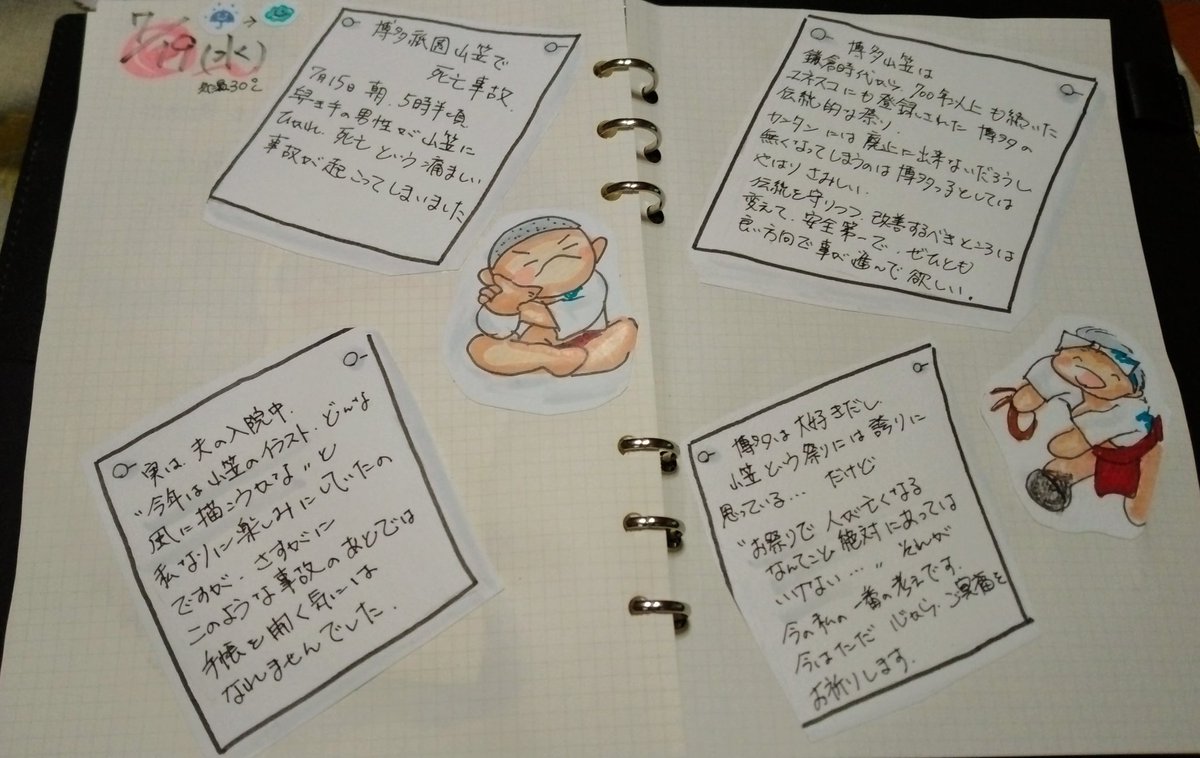 7/19(水)
気温30℃
博多祇園山笠で
死亡事故.
7月15日 朝.5時半頃
舁き手の男性が山笠に
ひかれ 死亡という痛ましい
事故が起こってしまいました
実は 夫の入院中.
"今年は山笠のイラスト.どんな
風に描こうかな"と
私なりに楽しみにしていたの
ですが. さすがに
このような事故のあとでは
手帳を開く気には
なれませんでした.
博多山笠は
鎌倉時代から.700年以上も続いた
ユネスコにも登録された 博多の
伝統的な祭り.
カンタンには廃止に出来ないだろうし
無くなってしまうのは博多っ子としては
やはり さみしい.
伝統を守りつつ.改善するべきところは
変えて. 安全第一で. ぜひとも
良い方向で事が進んで欲しい.
博多は大好きだし
山笠という祭りには誇りに
思っている… だけど
"お祭りで 人が亡くなる
なんてこと絶対にあっては
いけない…" それが
今の私の一番の考えです.
今はただ 心から.ご冥福を
お祈りします.